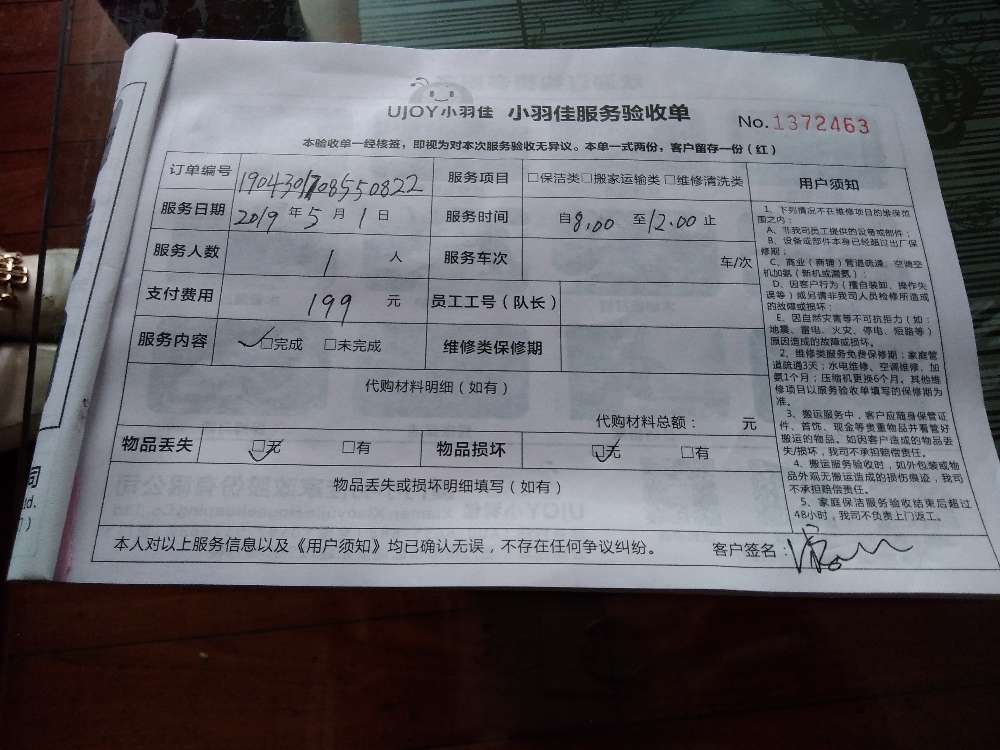 UJOY小羽佳 小羽佳服务验收单
No.1372463
本验收单一经核签，即视为对本次服务验收无异议。本单一式两份，客户留存一份（红）
订单编号 190430170855​0822 服务项目 □保洁类□搬家运输类□维修清洗类
服务日期 2019年5月1日 服务时间 自8:00至12:00止
服务人数 1 人 服务车次 车/次
支付费用 199 元 员工工号（队长）
服务内容 □完成 □未完成 维修类保修期
代购材料明细（如有）
代购材料总额： 元
物品丢失 □无 □有 物品损坏 □无 □有
物品丢失或损坏明细填写（如有）
本人对以上服务信息以及《用户须知》均已确认无误，不存在任何争议纠纷。 客户签名：
用户须知
1、下列情况不在维修项目的维保范
围之内：
A、非我司员工提供的设备或部件；
B、设备或部件本身已经超过出厂保
修期；
C、商业（商铺）管道疏通、空调空
机加氨（新机或漏氨）；
D、因客户行为（擅自装卸、操作失
误等）或另请非我司人员检修所造成
的故障或损坏；
E、因自然灾害等不可抗拒力（如：
地震、雷电、火灾、停电、短路等）
原因造成的故障或损坏。
2、维修类服务免费保修期：家庭管
道疏通3天；水电维修、空调维修、加
氨1个月；压缩机更换6个月。其他维
修项目以服务验收单填写的保修期为
准。
3、搬运服务中，客户应随身保管证
件、首饰、现金等贵重物品并看管好
搬运的物品。如因客户造成的物品丢
失/损坏，我司不承担赔偿责任。
4、搬运服务验收时，如外包装或物
品外观无搬运造成的损伤痕迹，我司
不承担赔偿责任。
5、家庭保洁服务验收结束后超过
48小时，我司不负责上门返工。